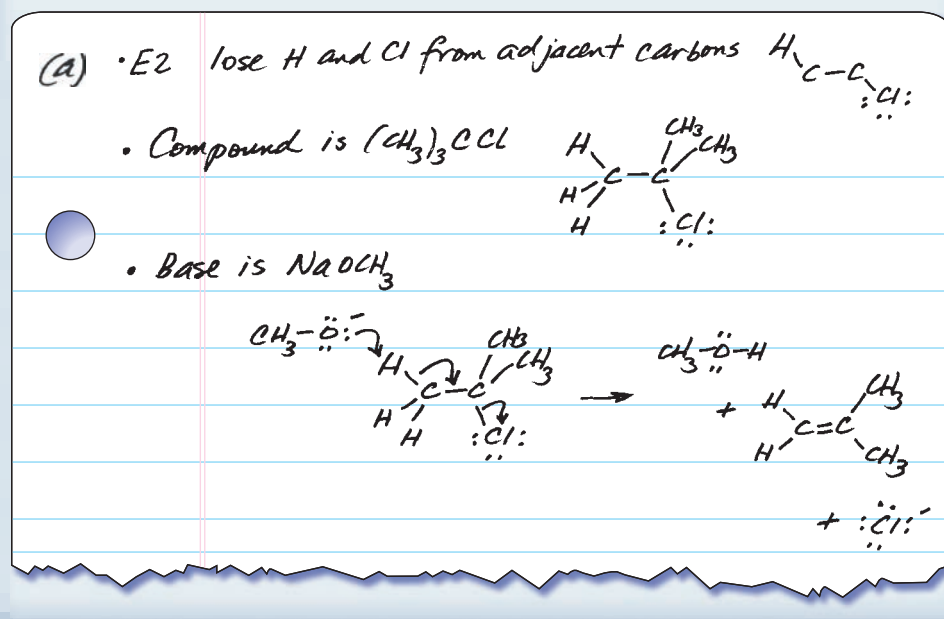 (a) • E2 lose H and Cl from adjacent carbons H
C–C
:Cl:
• Compound is (CH₃)₃CCl
H CH₃ CH₃
C–C
H
H :Cl:
• Base is NaOCH₃
CH₃–O:⁻
H CH3 CH₃
C–C
H
H :Cl:
CH₃–O–H
+ H CH₃
C=C
H CH₃
+ :Cl:⁻